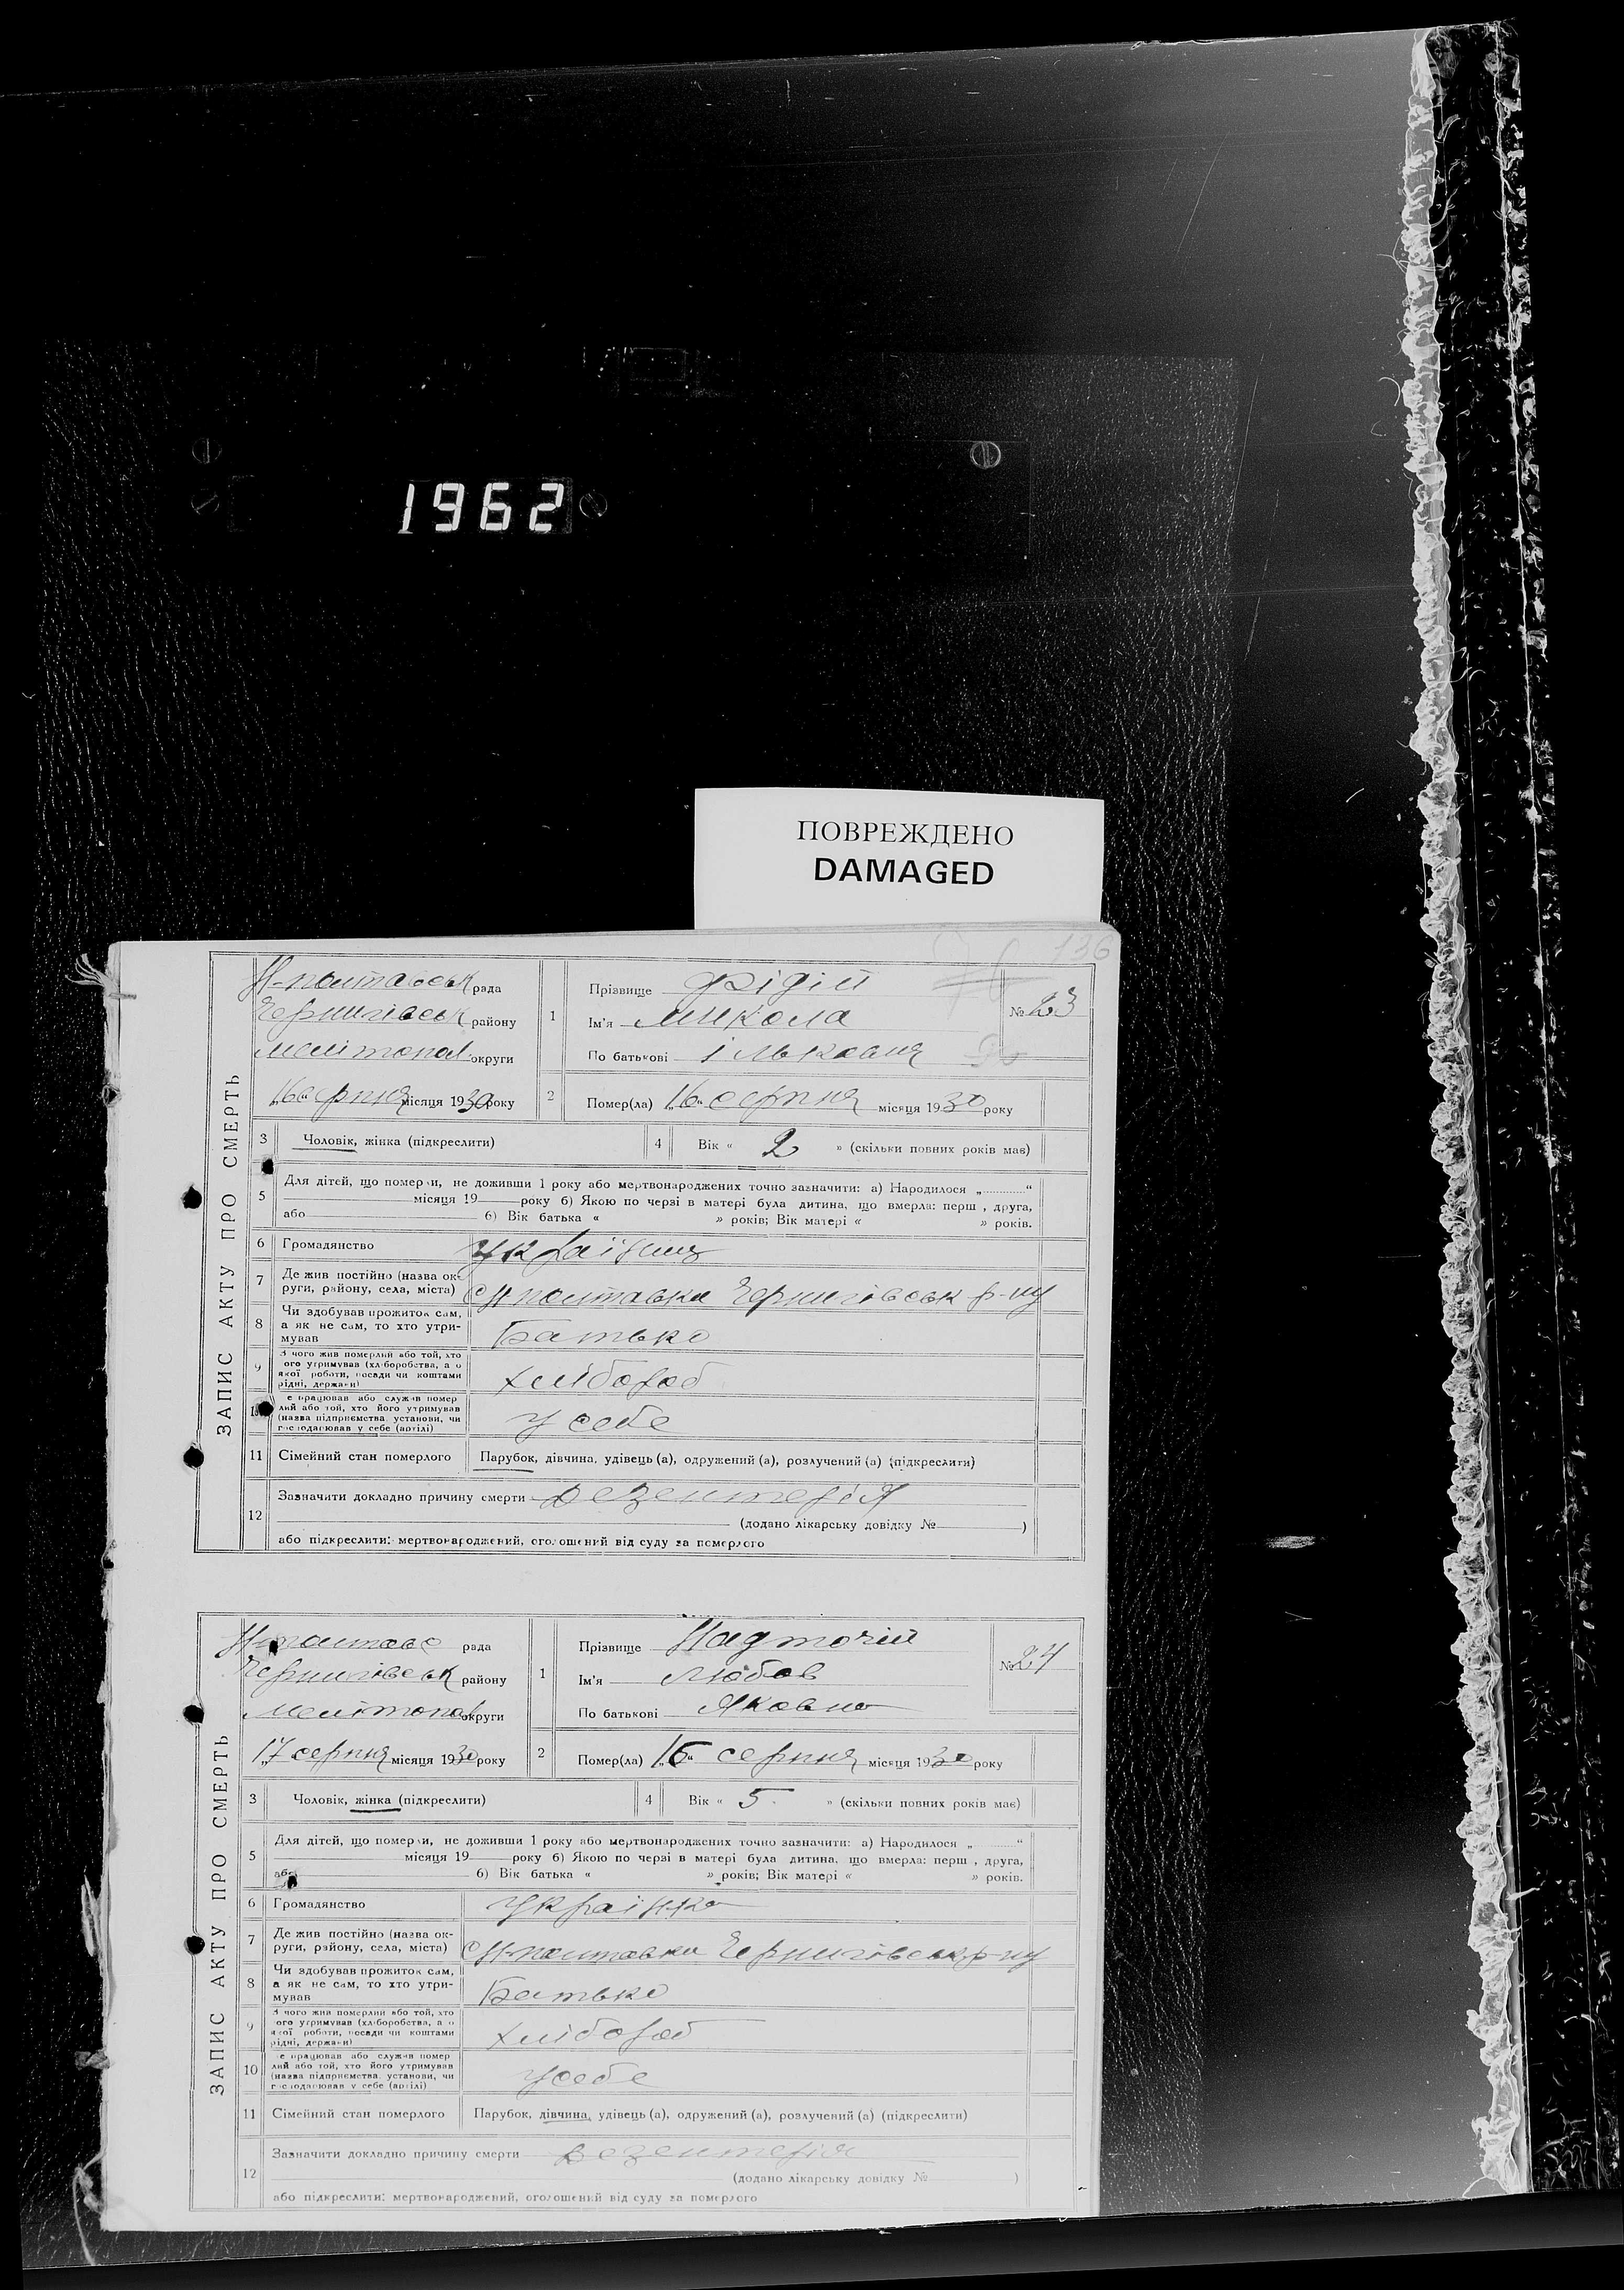 1962
ПОВРЕЖДЕНО
DAMAGED
136
ЗАПИС АКТУ ПРО СМЕРТЬ
Н-полтавськ рада
Чернигівськ району
Мелітопол округи
„16“ серпня місяця 1930 року
1 Прізвище Фідій
Ім'я Микола
По батькові Ількович
№ 23
2 Помер(ла) „16“ серпня місяця 1930 року
3 Чоловік, жінка (підкреслити)
4 Вік « 2 » (скільки повних років має)
5 Для дітей, що померли, не доживши 1 року або мертвонароджених точно зазначити: а) Народилося „ “
місяця 19 року б) Якою по черзі в матері була дитина, що вмерла: перш , друга,
або б) Вік батька « » років; Вік матері « » років.
6 Громадянство Українець
7 Де жив постійно (назва ок-
руги, району, села, міста) с Н-полтавка Чернигівськ р-ну
8 Чи здобував прожиток сам,
а як не сам, то хто утри-
мував Батько
9 З чого жив померлий або той, хто
ого утримував (хліборобства, а о
якої роботи, посади чи коштами
рідні, держави) хлібороб
10 е працював або служив помер
лий або той, хто його утримував
(назва підприємства, установи, чи
господарював у себе (артілі) У себе
11 Сімейний стан померлого Парубок, дівчина, удівець (а), одружений (а), розлучений (а) (підкреслити)
12 Зазначити докладно причину смерти Дезентерія
(додано лікарську довідку № )
або підкреслити: мертвонароджений, оголошений від суду за померлого
ЗАПИС АКТУ ПРО СМЕРТЬ
Н-полтавс рада
Чернигівськ району
Мелітопол округи
„17 серпня місяця 1930 року
1 Прізвище Надточій
Ім'я Любов
По батькові Яковна
№ 24
2 Помер(ла) „16“ серпня місяця 1930 року
3 Чоловік, жінка (підкреслити)
4 Вік « 5 » (скільки повних років має)
5 Для дітей, що померли, не доживши 1 року або мертвонароджених точно зазначити: а) Народилося „ “
місяця 19 року б) Якою по черзі в матері була дитина, що вмерла: перш , друга,
або б) Вік батька « » років; Вік матері « » років.
6 Громадянство Українка
7 Де жив постійно (назва ок-
руги, району, села, міста) с Н-полтавка Чернигівськ р-ну
8 Чи здобував прожиток сам,
а як не сам, то хто утри-
мував Батько
9 З чого жив померлий або той, хто
ого утримував (хліборобства, а о
якої роботи, посади чи коштами
рідні, держави) хлібороб
10 е працював або служив помер
лий або той, хто його утримував
(назва підприємства, установи, чи
господарював у себе (артілі) У себе
11 Сімейний стан померлого Парубок, дівчина, удівець (а), одружений (а), розлучений (а) (підкреслити)
12 Зазначити докладно причину смерти Дезентерія
(додано лікарську довідку № )
або підкреслити: мертвонароджений, оголошений від суду за померлого